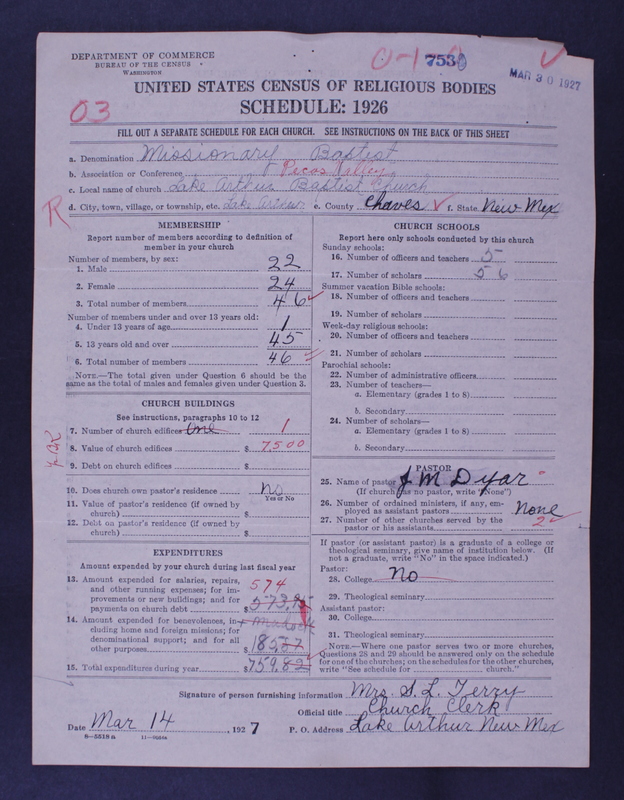 DEPARTMENT OF COMMERCE
BUREAU OF THE CENSUS
WASHINGTON
7530
MAR 30 1927
UNITED STATES CENSUS OF RELIGIOUS BODIES
SCHEDULE: 1926
03
FILL OUT A SEPARATE SCHEDULE FOR EACH CHURCH. SEE INSTRUCTIONS ON THE BACK OF THIS SHEET
a. Denomination Missionary Baptist
b. Association or Conference Pecos Valley
c. Local name of church Lake Arthur Baptist Church
d. City, town, village, or township, etc. Lake Arthur e. County Chaves f. State New Mex
R
MEMBERSHIP
Report number of members according to definition of
member in your church
Number of members, by sex:
1. Male 22
2. Female 24
3. Total number of members 46
Number of members under and over 13 years old:
4. Under 13 years of age 1
5. 13 years old and over 45
6. Total number of members 46
NOTE.—The total given under Question 6 should be the
same as the total of males and females given under Question 3.
CHURCH BUILDINGS
See instructions, paragraphs 10 to 12
7. Number of church edifices One 1
8. Value of church edifices $ 7500
9. Debt on church edifices $
10. Does church own pastor's residence No
Yes or No
11. Value of pastor's residence (if owned by
church) $
12. Debt on pastor's residence (if owned by
church) $
EXPENDITURES
Amount expended by your church during last fiscal year
13. Amount expended for salaries, repairs,
and other running expenses; for im-
provements or new buildings; and for
payments on church debt $ 574
573.95
14. Amount expended for benevolences, in-
cluding home and foreign missions; for
denominational support; and for all
other purposes $ 185.87
15. Total expenditures during year $ 759.82
CHURCH SCHOOLS
Report here only schools conducted by this church
Sunday schools:
16. Number of officers and teachers 5
17. Number of scholars 56
Summer vacation Bible schools:
18. Number of officers and teachers
19. Number of scholars
Week-day religious schools:
20. Number of officers and teachers
21. Number of scholars
Parochial schools:
22. Number of administrative officers
23. Number of teachers—
a. Elementary (grades 1 to 8)
b. Secondary
24. Number of scholars—
a. Elementary (grades 1 to 8)
b. Secondary
PASTOR
25. Name of pastor J M Dyar
(If church has no pastor, write "None")
26. Number of ordained ministers, if any, em-
ployed as assistant pastors None
27. Number of other churches served by the
pastor or his assistants 2
If pastor (or assistant pastor) is a graduate of a college or
theological seminary, give name of institution below. (If
not a graduate, write "No" in the space indicated.)
Pastor:
28. College No
29. Theological seminary
Assistant pastor:
30. College
31. Theological seminary
NOTE.—Where one pastor serves two or more churches,
Questions 28 and 29 should be answered only on the schedule
for one of the churches; on the schedules for the other churches,
write "See schedule for church."
Signature of person furnishing information Mrs. S. L. Terry
Official title Church Clerk
Date Mar 14, 1927 P. O. Address Lake Arthur New Mex
8-5518a